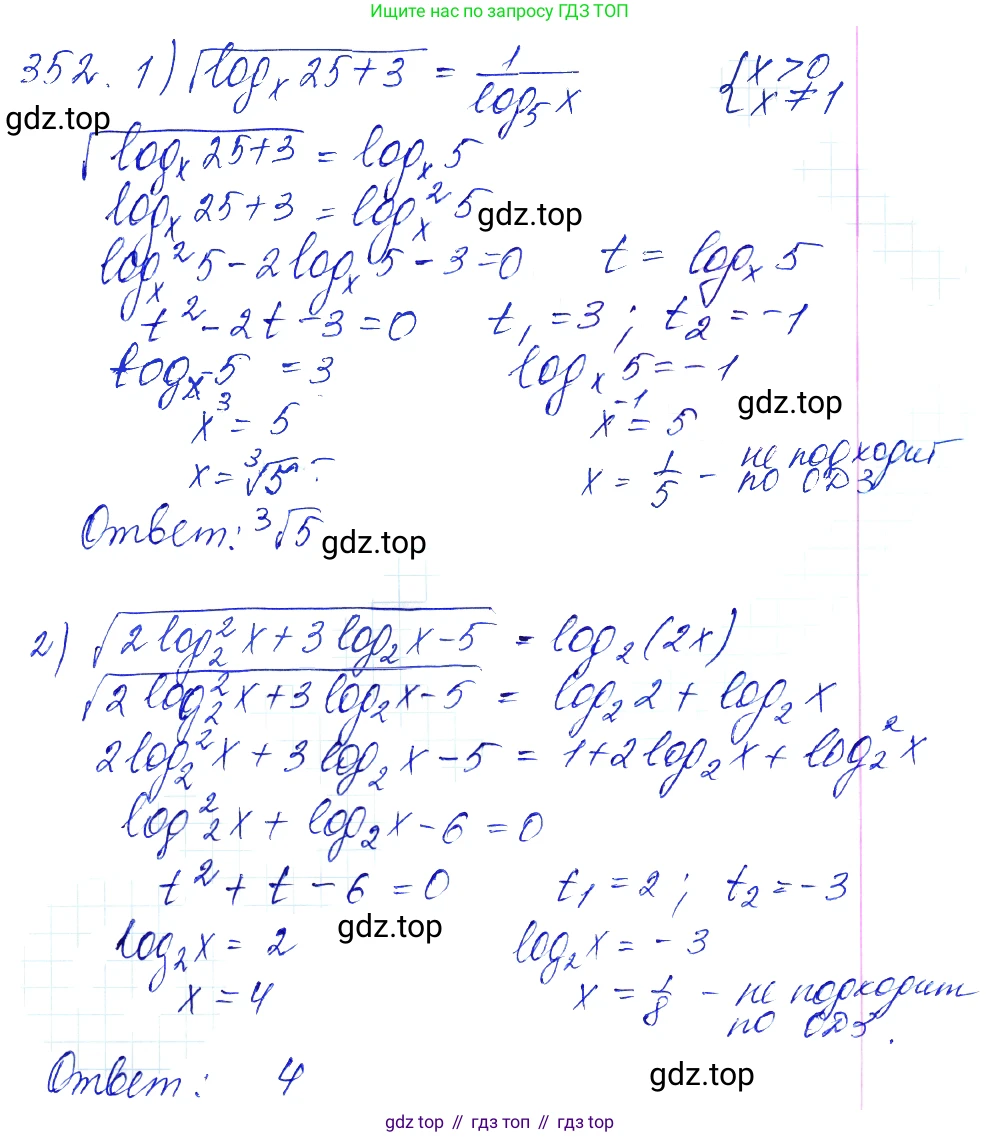 Ищите нас по запросу ГДЗ ТОП
352. 1) √(log_x 25+3) = 1/(log_5 x) {x>0 x≠1
gdz.top
√(log_x 25+3) = log_x 5
log_x 25+3 = log_x^2 5 gdz.top
log_x^2 5 - 2 log_x 5 - 3 = 0 t = log_x 5
t^2 - 2t - 3 = 0 t_1 = 3 ; t_2 = -1
log_x 5 = 3 log_x 5 = -1
x^3 = 5 x^-1 = 5 gdz.top
x = ∛5 x = 1/5 - не подходит по ОДЗ
Ответ: ∛5 gdz.top
2) √(2 log_2^2 x + 3 log_2 x - 5) = log_2 (2x)
√(2 log_2^2 x + 3 log_2 x - 5) = log_2 2 + log_2 x
2 log_2^2 x + 3 log_2 x - 5 = 1 + 2 log_2 x + log_2^2 x
log_2^2 x + log_2 x - 6 = 0
t^2 + t - 6 = 0 t_1 = 2 ; t_2 = -3
log_2 x = 2 gdz.top log_2 x = -3
x = 4 x = 1/8 - не подходит по ОДЗ.
Ответ: 4 gdz.top
gdz.top // гдз топ // gdz.top